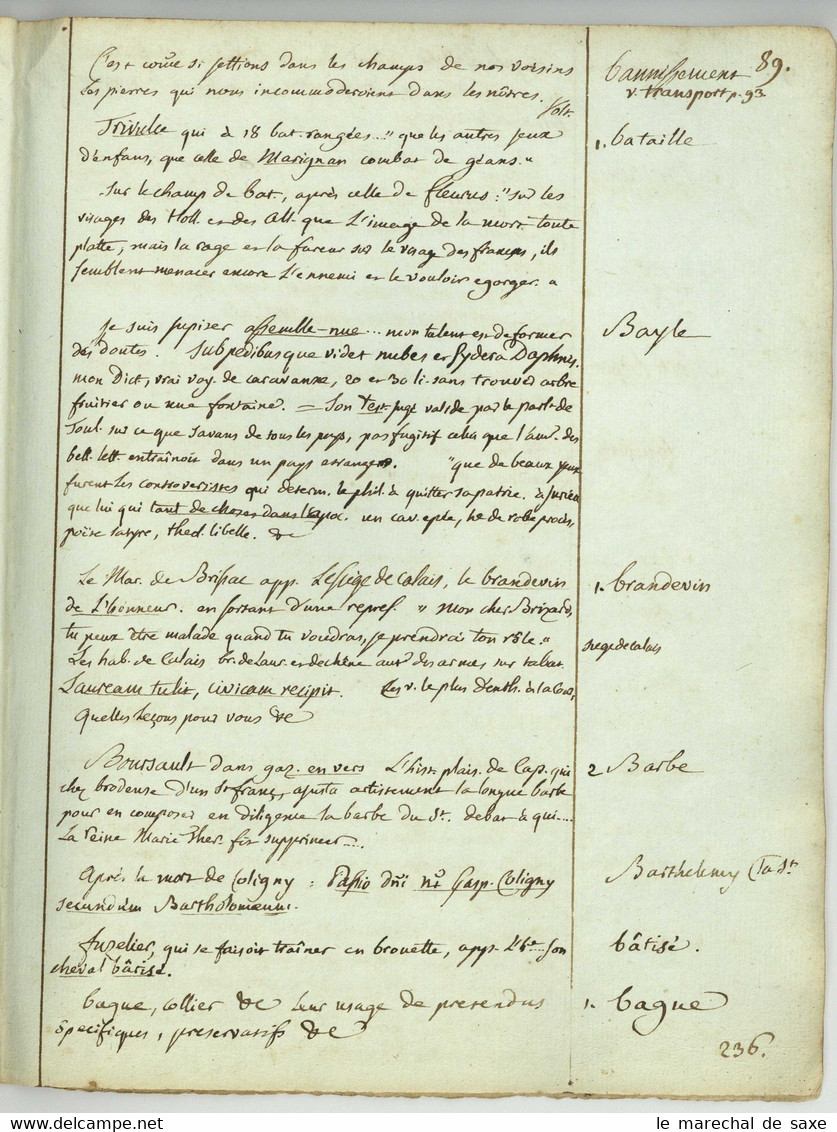 89.
C'est come si jettions dans les champs de nos voisins
les pierres qui nous incommoderoient dans les nôtres.
Volt.
bannissement
v. transport p. 93
Trivulce qui à 18 bat. rangées... "que les autres jeux
d'enfans, que celle de Marignan combat de géans."
1. bataille
Sur le champ de bat., après celle de fleurus : "sur les
visages des Holl. et des All. que L'image de la mort toute
platte, mais la rage et la fureur sur le visag. des françois, ils
semblent menacer encore L'ennemi et le vouloir egorger.
je suis jupiter assemble-nue... mon talent est de former
des doutes. Sub pedibusque videt nubes et sydera Daphnis.
mon Dict, vrai voy. de caravanne, 20 et 30 li. sans trouver arbre
fruitier ou une fontaine. = Son Test. jugé valide par le parl. de
Toul. sur ce que savans de tous les pays, pas fugitif celui que l'am. des
bell. lett entraînoit dans un pays etranger. "que de beaux yeux
furent les controversistes qui déterm. le phil. à quitter sa patrie. à Jurieu
que lui qui tant de choses dans l'apoc. un cav. epée, he de robe procès,
poëte satyre, theol. libelle. &c
Bayle
Le Mar. de Brissac app. Le siège de Calais, le brandevin
de L'honneur. en sortant d'une repres. "mon cher Brizard,
tu peux être malade quand tu voudras, je prendrai ton rôle."
Les hab. de Calais br. de laur. et de chêne aux des armes sur tabat.
Lauream tulit, civicam recipit. Les v. le plus d'enth. à la Cour,
Quelles leçons pour vous &c
1. brandevin
siege de calais
Boursault dans gaz. en vers L'hist. plais. de Cap. qui
chez brodeuse d'un St franç. ajusta artistement la longue barbe
pour en composer en diligence la barbe du St. debat à qui....
La Reine Marie Ther. fit supprimer....
2 Barbe
Après la mort de Coligny : Passio dñi nri Gasp. Coligny
secundùm Bartholomæum.
Barthelemy (la St
fuzelier, qui se faisoit traîner en brouette, app. L'he son
cheval bâtisé.
bâtisé.
bague, collier &c leur usage de pretendus
specifiques, preservatifs &c
1. bague
236.
le marechal de saxe